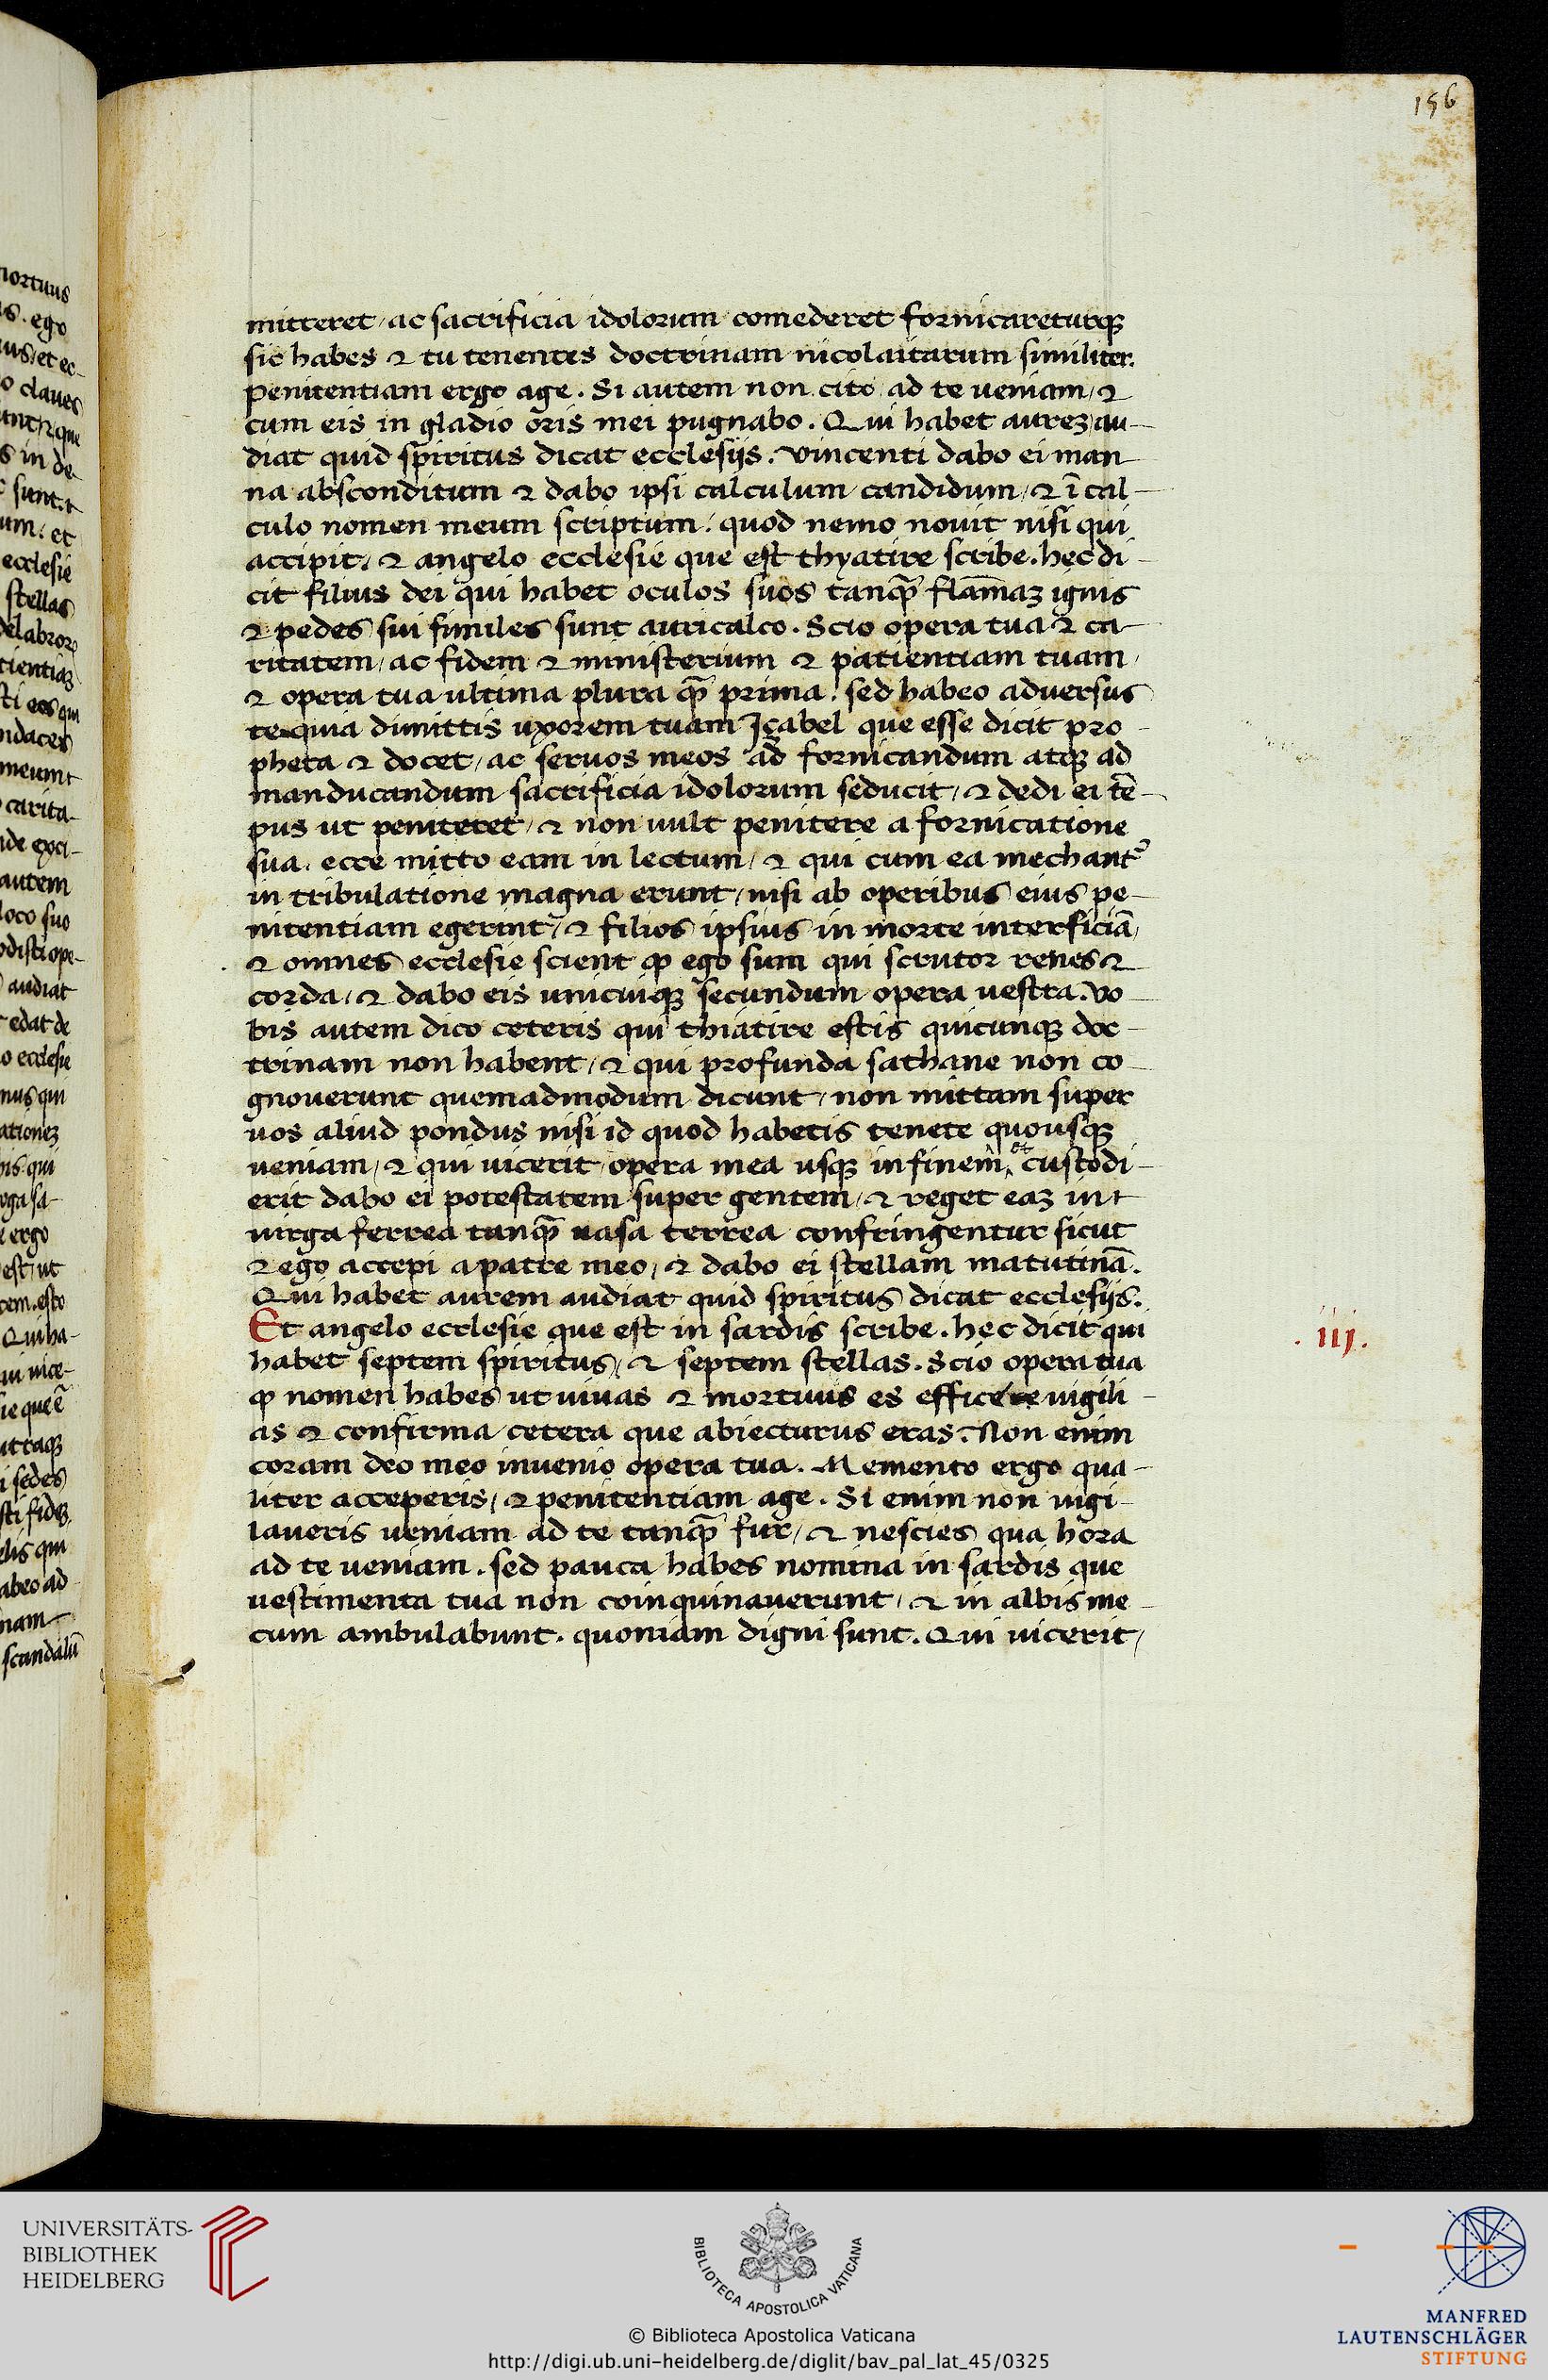 156
mitteret / ac sacrificia idolorum comederet fornicareturqꝫ
sic habes ⁊ tu tenentes doctrinam nicolaitarum similiter.
penitentiam ergo age. Si autem non cito ad te ueniam / ⁊
cum eis in gladio oris mei pugnabo. Qui habet aureꝫ au-
diat quid spiritus dicat ecclesijs. vincenti dabo ei man
na absconditum ⁊ dabo ipsi calculum candidum / ⁊ ī cal-
culo nomen meum scriptum: quod nemo nouit nisi qui
accipit / ⁊ angelo ecclesie que est thyatire scribe. hec di-
cit filius dei qui habet oculos suos tanqꝫ̄ flam̄aꝫ ignis
⁊ pedes sui similes sunt auricalco. Scio opera tua ⁊ ca-
ritatem / ac fidem ⁊ ministerium ⁊ patientiam tuam /
⁊ opera tua ultima plura qꝫ̄ prima. sed habeo adversus
te quia dimittis uxorem tuam Jçabel que esse dicit pro-
pheta ⁊ docet / ac seruos meos ad fornicandum atqꝫ ad
manducandum sacrificia idolorum seducit / ⁊ dedi ei tē-
pus ut peniteret / ⁊ non uult penitere a fornicatione
sua. ecce mitto eam in lectum / ⁊ qui cum ea mechant᷑
in tribulatione magna erunt / nisi ab operibus eius pe-
nitentiam egerint / ⁊ filios ipsius in morte interficiā /
⁊ omnes ecclesie scient ꝙ ego sum qui scrutor renes ⁊
corda / ⁊ dabo eis unicuiqꝫ secundum opera uestra. vo-
bis autem dico ceteris qui thiatire estis quicunqꝫ doc-
trinam non habent / ⁊ qui profunda sathane non co-
gnouerunt quemadmodum dicunt / non mittam super
uos aliud pondus nisi id quod habetis tenete quousqꝫ
ueniam / ⁊ qui uicerit opera mea usqꝫ in finem et custodi-
erit dabo ei potestatem super gentem / ⁊ reget eaꝫ in
uirga ferrea tanqꝫ̄ uasa terrea confringentur sicut
⁊ ego accepi a patre meo / ⁊ dabo ei stellam matutinā.
Qui habet aurem audiat quid spiritus dicat ecclesijs.
Et angelo ecclesie que est in sardis scribe. hec dicit qui
.iij.
habet septem spiritus / ⁊ septem stellas. Scio opera tua
ꝙ nomen habes ut uiuas ⁊ mortuus es efficere uigili-
as ⁊ confirma cetera que abiecturus eras. Non enim
coram deo meo inuenio opera tua. Memento ergo qua-
liter acceperis / ⁊ penitentiam age. Si enim non uigi-
laueris ueniam ad te tanqꝫ̄ fur / ⁊ nescies qua hora
ad te ueniam. sed pauca habes nomina in sardis que
uestimenta tua non coinquinauerunt / ⁊ in albis me-
cum ambulabunt. quoniam digni sunt. Qui uicerit /
mortuus
ego
et ec-
claues
que
in de-
sunt. ⁊
et
ecclesie
stellas
eos qui
meum ⁊
carita-
autem
loco suo
audiat
edat de
ecclesie
qui
qui
ergo
est / ut
esto
Qui ha-
sedes
qui
ad
scandalū
UNIVERSITÄTS-
BIBLIOTHEK
HEIDELBERG
BIBLIOTECA APOSTOLICA VATICANA
© Biblioteca Apostolica Vaticana
http://digi.ub.uni-heidelberg.de/diglit/bav_pal_lat_45/0325
MANFRED
LAUTENSCHLÄGER
STIFTUNG